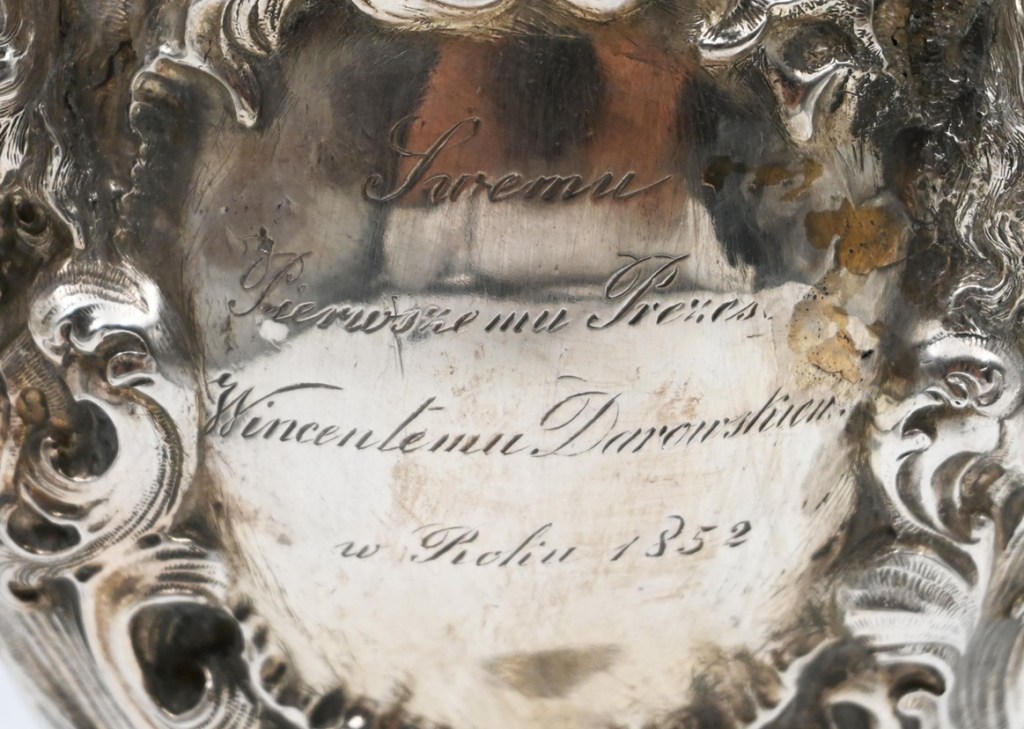 Swemu
Pierwszemu Prezes.
Wincentemu Darowskiem.
w Roku 1852